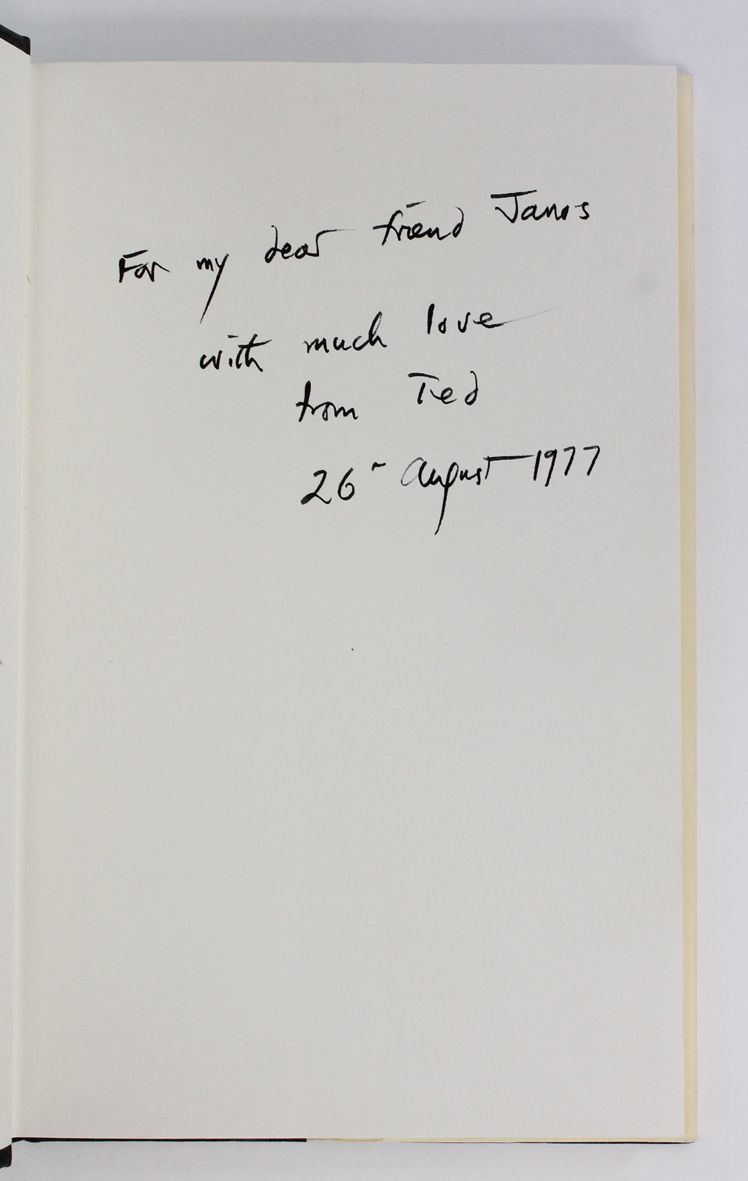 For my dear friend Janos
with much love
from Ted
26th August 1977